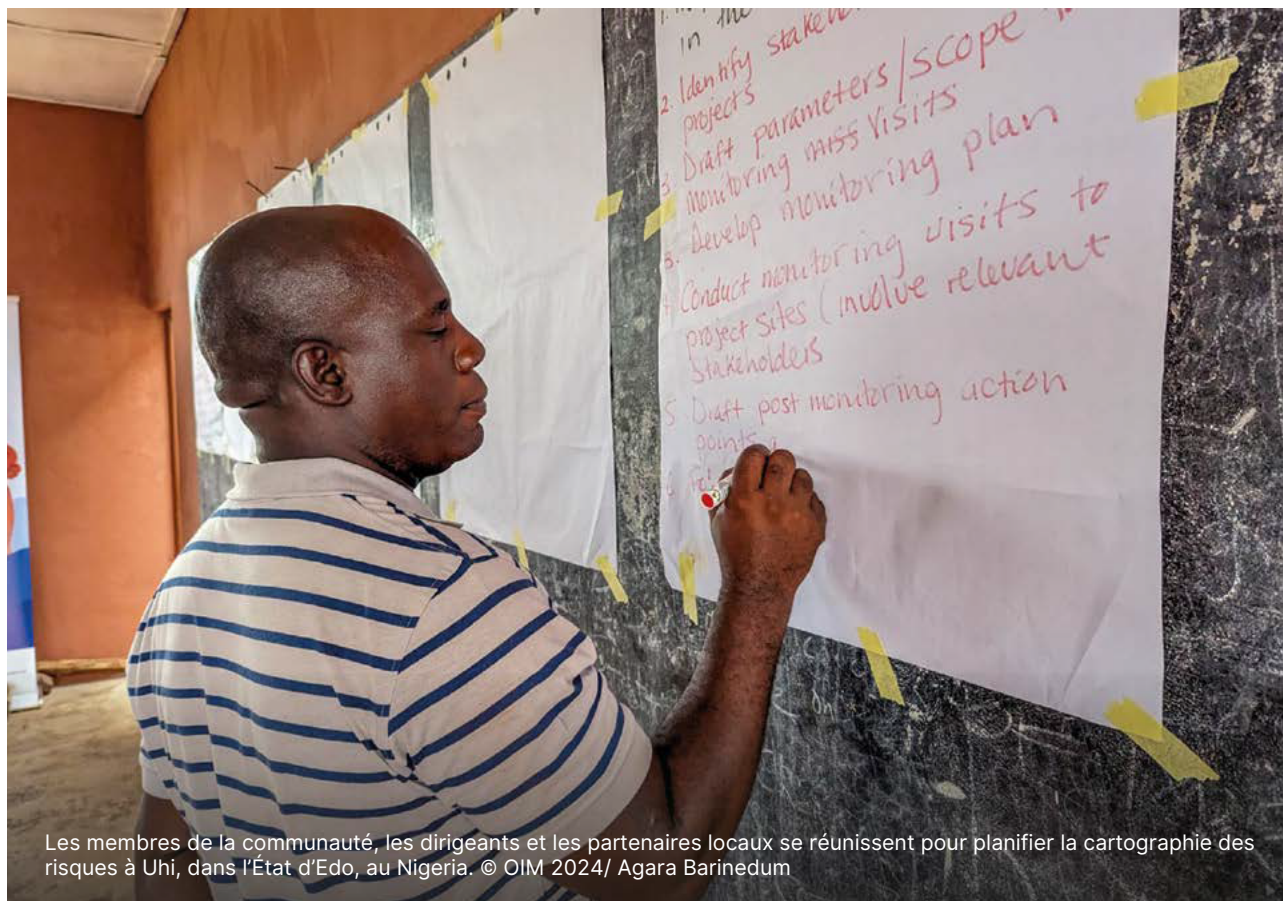 in the
2. Identify stakeho
projects
3. Draft parameters/scope
monitoring miss visits
3. Develop monitoring plan
4 Conduct monitoring visits to
project sites (involve relevant
stakeholders
5 Draft post monitoring action
points
Les membres de la communauté, les dirigeants et les partenaires locaux se réunissent pour planifier la cartographie des
risques à Uhi, dans l'État d'Edo, au Nigeria. © OIM 2024/ Agara Barinedum